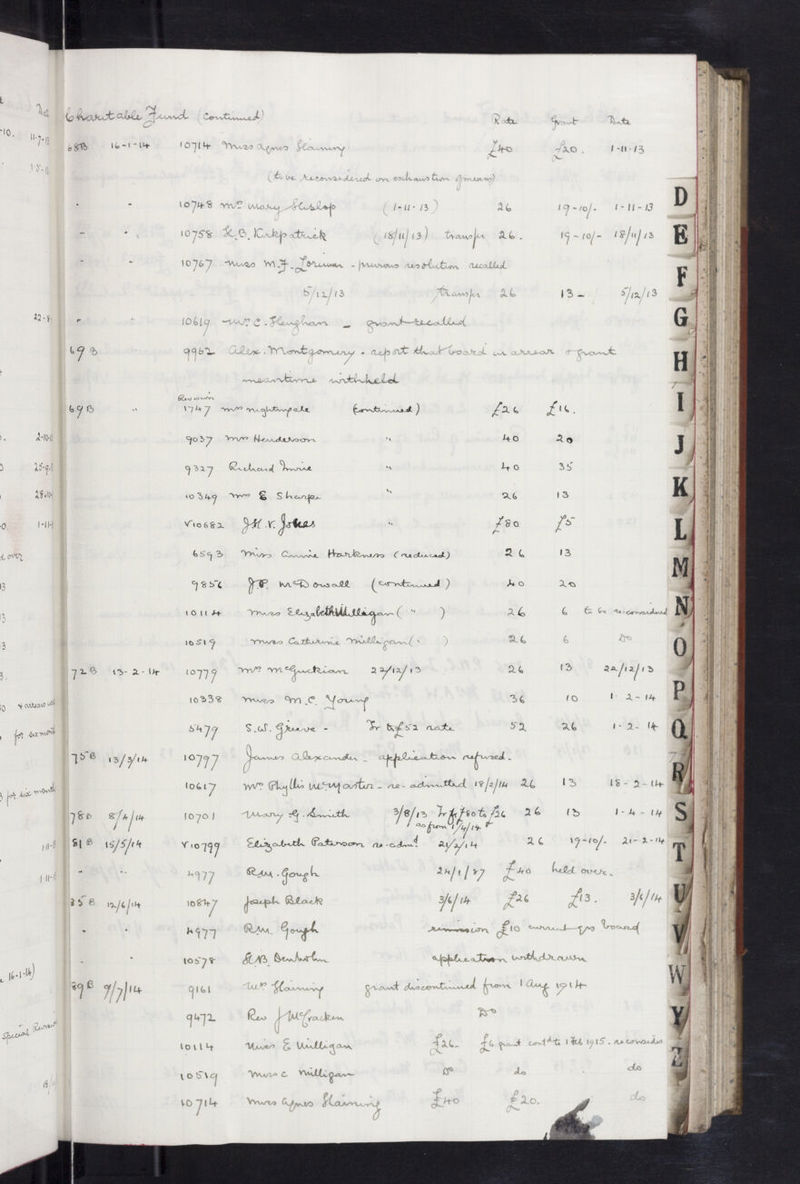 Charitable Fund (Continued) Rate Grant Date
68B 16-1-14 10714 Miss Agnes Haining £40 £20. 1-11-13
(to be reconsidered on exhaustion of means)
" " 10748 Mrs Mary Hislop (1-11-13) 26 19-10/- 1-11-13
" " 10758 K.B. Kirkpatrick (18/11/13) transfer 26. 19-10/- 18/11/13
" " 10767 Miss M.J. Lorimer - previous resolution recalled
5/12/13 Transfer 26 13- 5/12/13
" " 10619 Mrs C. Heughan - grant recalled
69B 9962 Alex. Montgomery. report that board in arrear & grant
meantime withheld
Revision
69B " 1747 Mrs Nightingale (continued) £26 £16.
9037 Mrs Henderson " 40 20
9327 Richard " 40 35
10349 Mrs E Sharpe " 26 13
V10682 " £80 £5
6593 Miss Annie Harkness (reduced) 26 13
9856 McDowall (continued) 40 20
10114 Miss Elizabeth Milligan ( " ) 26 6 to be reconsidered
10519 Miss Catherine Milligan ( " ) 26 6 Do
72B 13-2-14 10779 Mrs McGuckian 22/12/13 26 13 22/12/13
10338 Miss M.C. Young 36 10 1-2-14
5479 S.W. Grieve - Tr to £52 rate 52 26 1-2-14
75B 13/3/14 10797 James Alexander. application refused.
10617 Mrs Phyllis McMaster - re-admitted 18/2/14 26 13 18-2-14
78B 8/4/14 10701 Mary G. Smith 3/8/13 Tr fr £80 to £26 26 13 1-4-14
as from 1/4/14
81B 15/5/14 V10799 Elizabeth Paterson re-admd 21/2/14 26 19-10/- 21-2-14
" " 4977 R.M. Gough 24/1/87 £40 held over.
85B 12/6/14 10847 Joseph Black 3/6/14 £26 £13. 3/6/14
" " 4977 R.M. Gough remission £10 current yrs board
" " 10578 H.B. Denholm application withdrawn
89B 9/7/14 9161 Mrs Haining grant discontinued from 1 Aug 1914
9472 Rev J McCracken Do
10114 Miss E Milligan £26- £6 grant contd to 1 Feb 1915. reconsider
10519 Miss C Milligan Do do do
10714 Miss Agnes Haining £40 £20. do
D
E
F
G
H
I
J
K
L
M
N
O
P
Q
R
S
T
U
V
W
Y
Z